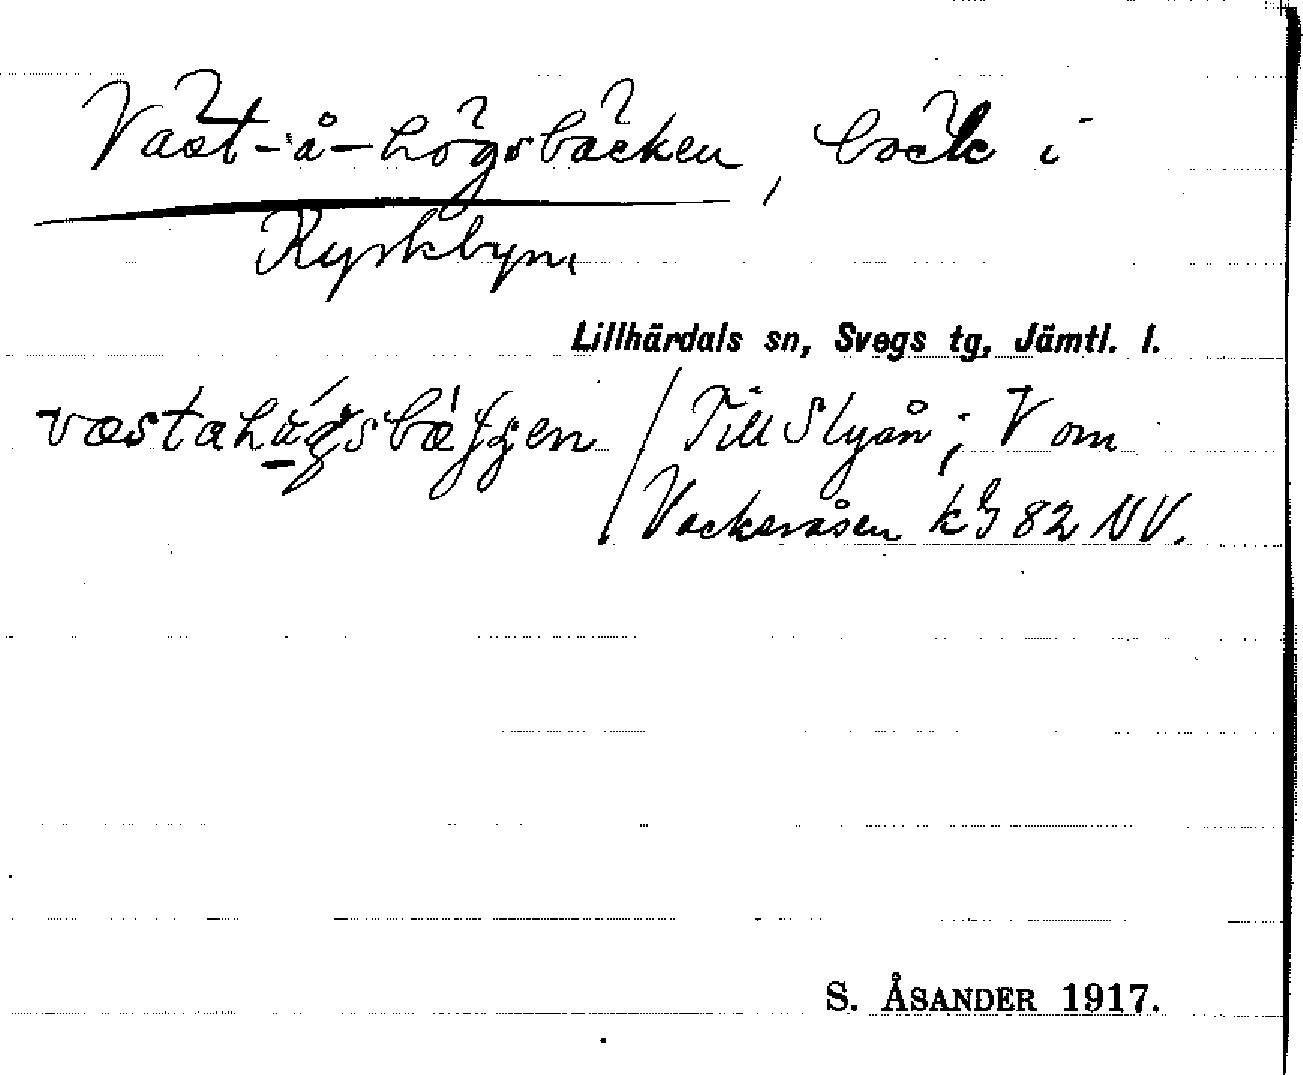 Väst-å-högsbäcken, bäck i
Kyrkbyn.
Lillhärdals sn, Svegs tg, Jämtl. l.
Till Slyån; V om
Vackeråsen kbl 82 NV.
S. ÅSANDER 1917.